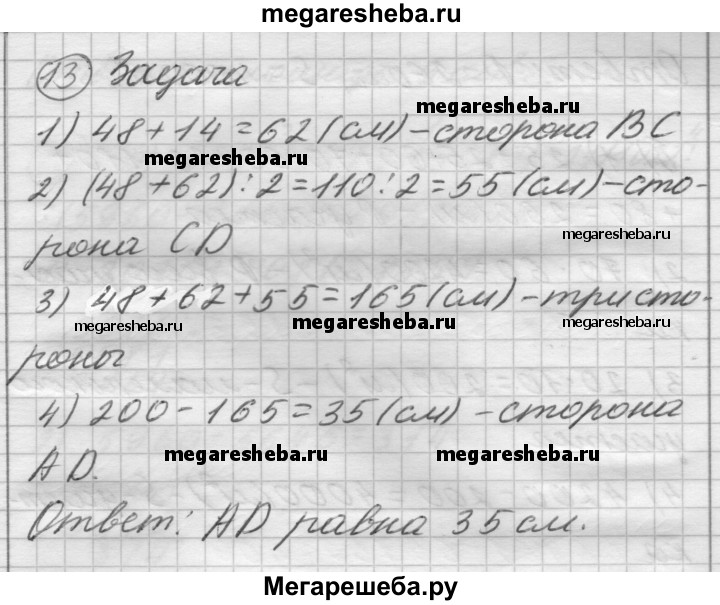 megaresheba.ru
13 Задача
megaresheba.ru
1) 48+14=62(см)-сторона BC
megaresheba.ru
2) (48+62):2=110:2=55(см)-сто-
рона CD
megaresheba.ru
3) 48+62+55=165(см)-три сто-
megaresheba.ru megaresheba.ru megaresheba.ru
роны
4) 200-165=35(см)-сторона
AD.
megaresheba.ru megaresheba.ru
Ответ: AD равна 35 см.
Мегарешеба.ру